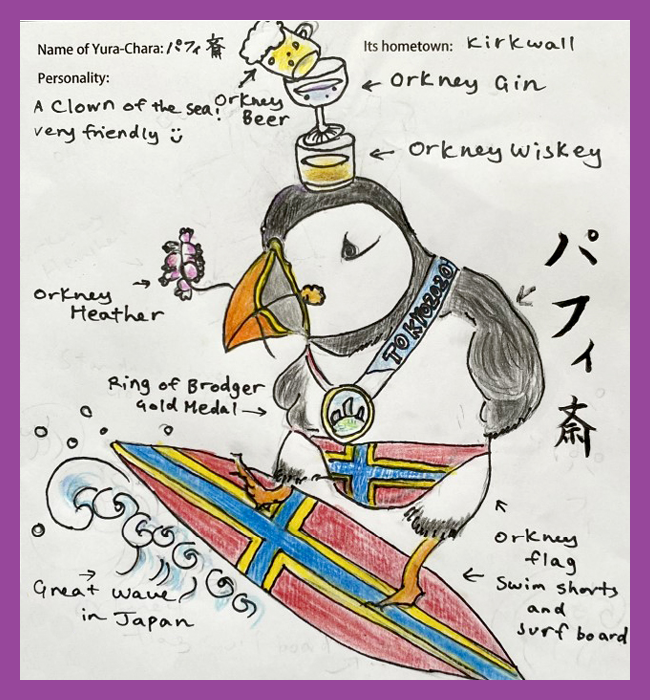 Name of Yura-Chara: パフィ斎
Its hometown: Kirkwall
Personality:
A clown of the sea!
very friendly
Orkney
Beer
Orkney Gin
Orkney Wiskey
パフィ斎
Orkney
Heather
TOKYO2020
Ring of Brodger
Gold Medal
Orkney
flag
Swim shorts
and
surf board
Great wave
in Japan